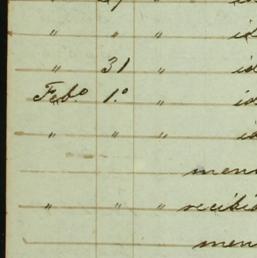 " " id
" 31 " id
Feb.o 1.o " id
" " " id
men
" " " recibi
men